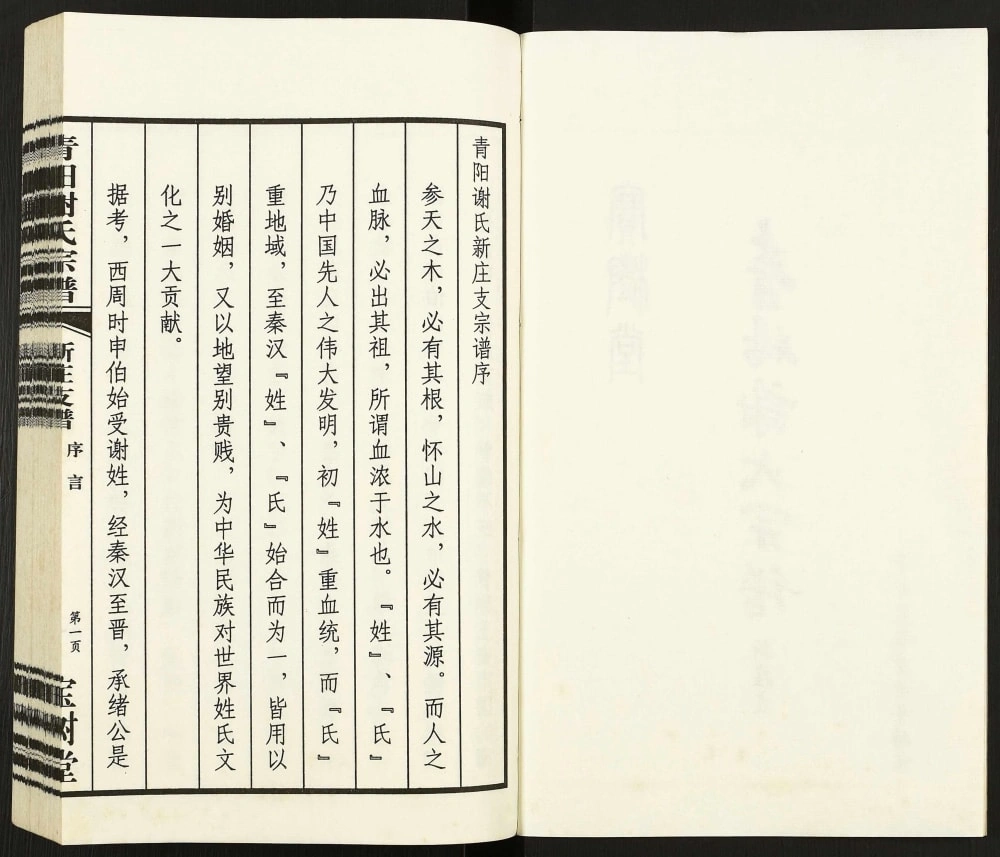 青阳谢氏新庄支宗谱序
参天之木，必有其根，怀山之水，必有其源。而人之
血脉，必出其祖，所谓血浓于水也。『姓』、『氏』
乃中国先人之伟大发明，初『姓』重血统，而『氏』
重地域，至秦汉『姓』、『氏』始合而为一，皆用以
别婚姻，又以地望别贵贱，为中华民族对世界姓氏文
化之一大贡献。
据考，西周时申伯始受谢姓，经秦汉至晋，承绪公是
青阳谢氏宗谱
新庄支谱
序言
第一页
宝树堂